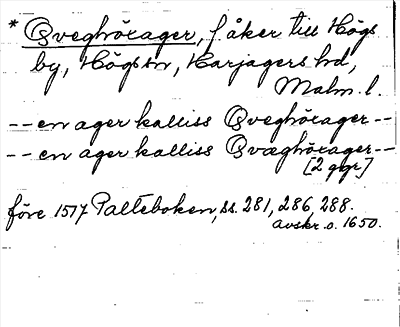 * Qveghörager, f. åker till Högs
by, Högs sn, Harjagers hd,
Malm. l.
-- en ager kalliss Qveghörager --
-- en ager kalliss Qvæghörager --
[2 ggr]
före 1517 Palteboken, ss. 281, 286, 288.
avskr. o. 1650.